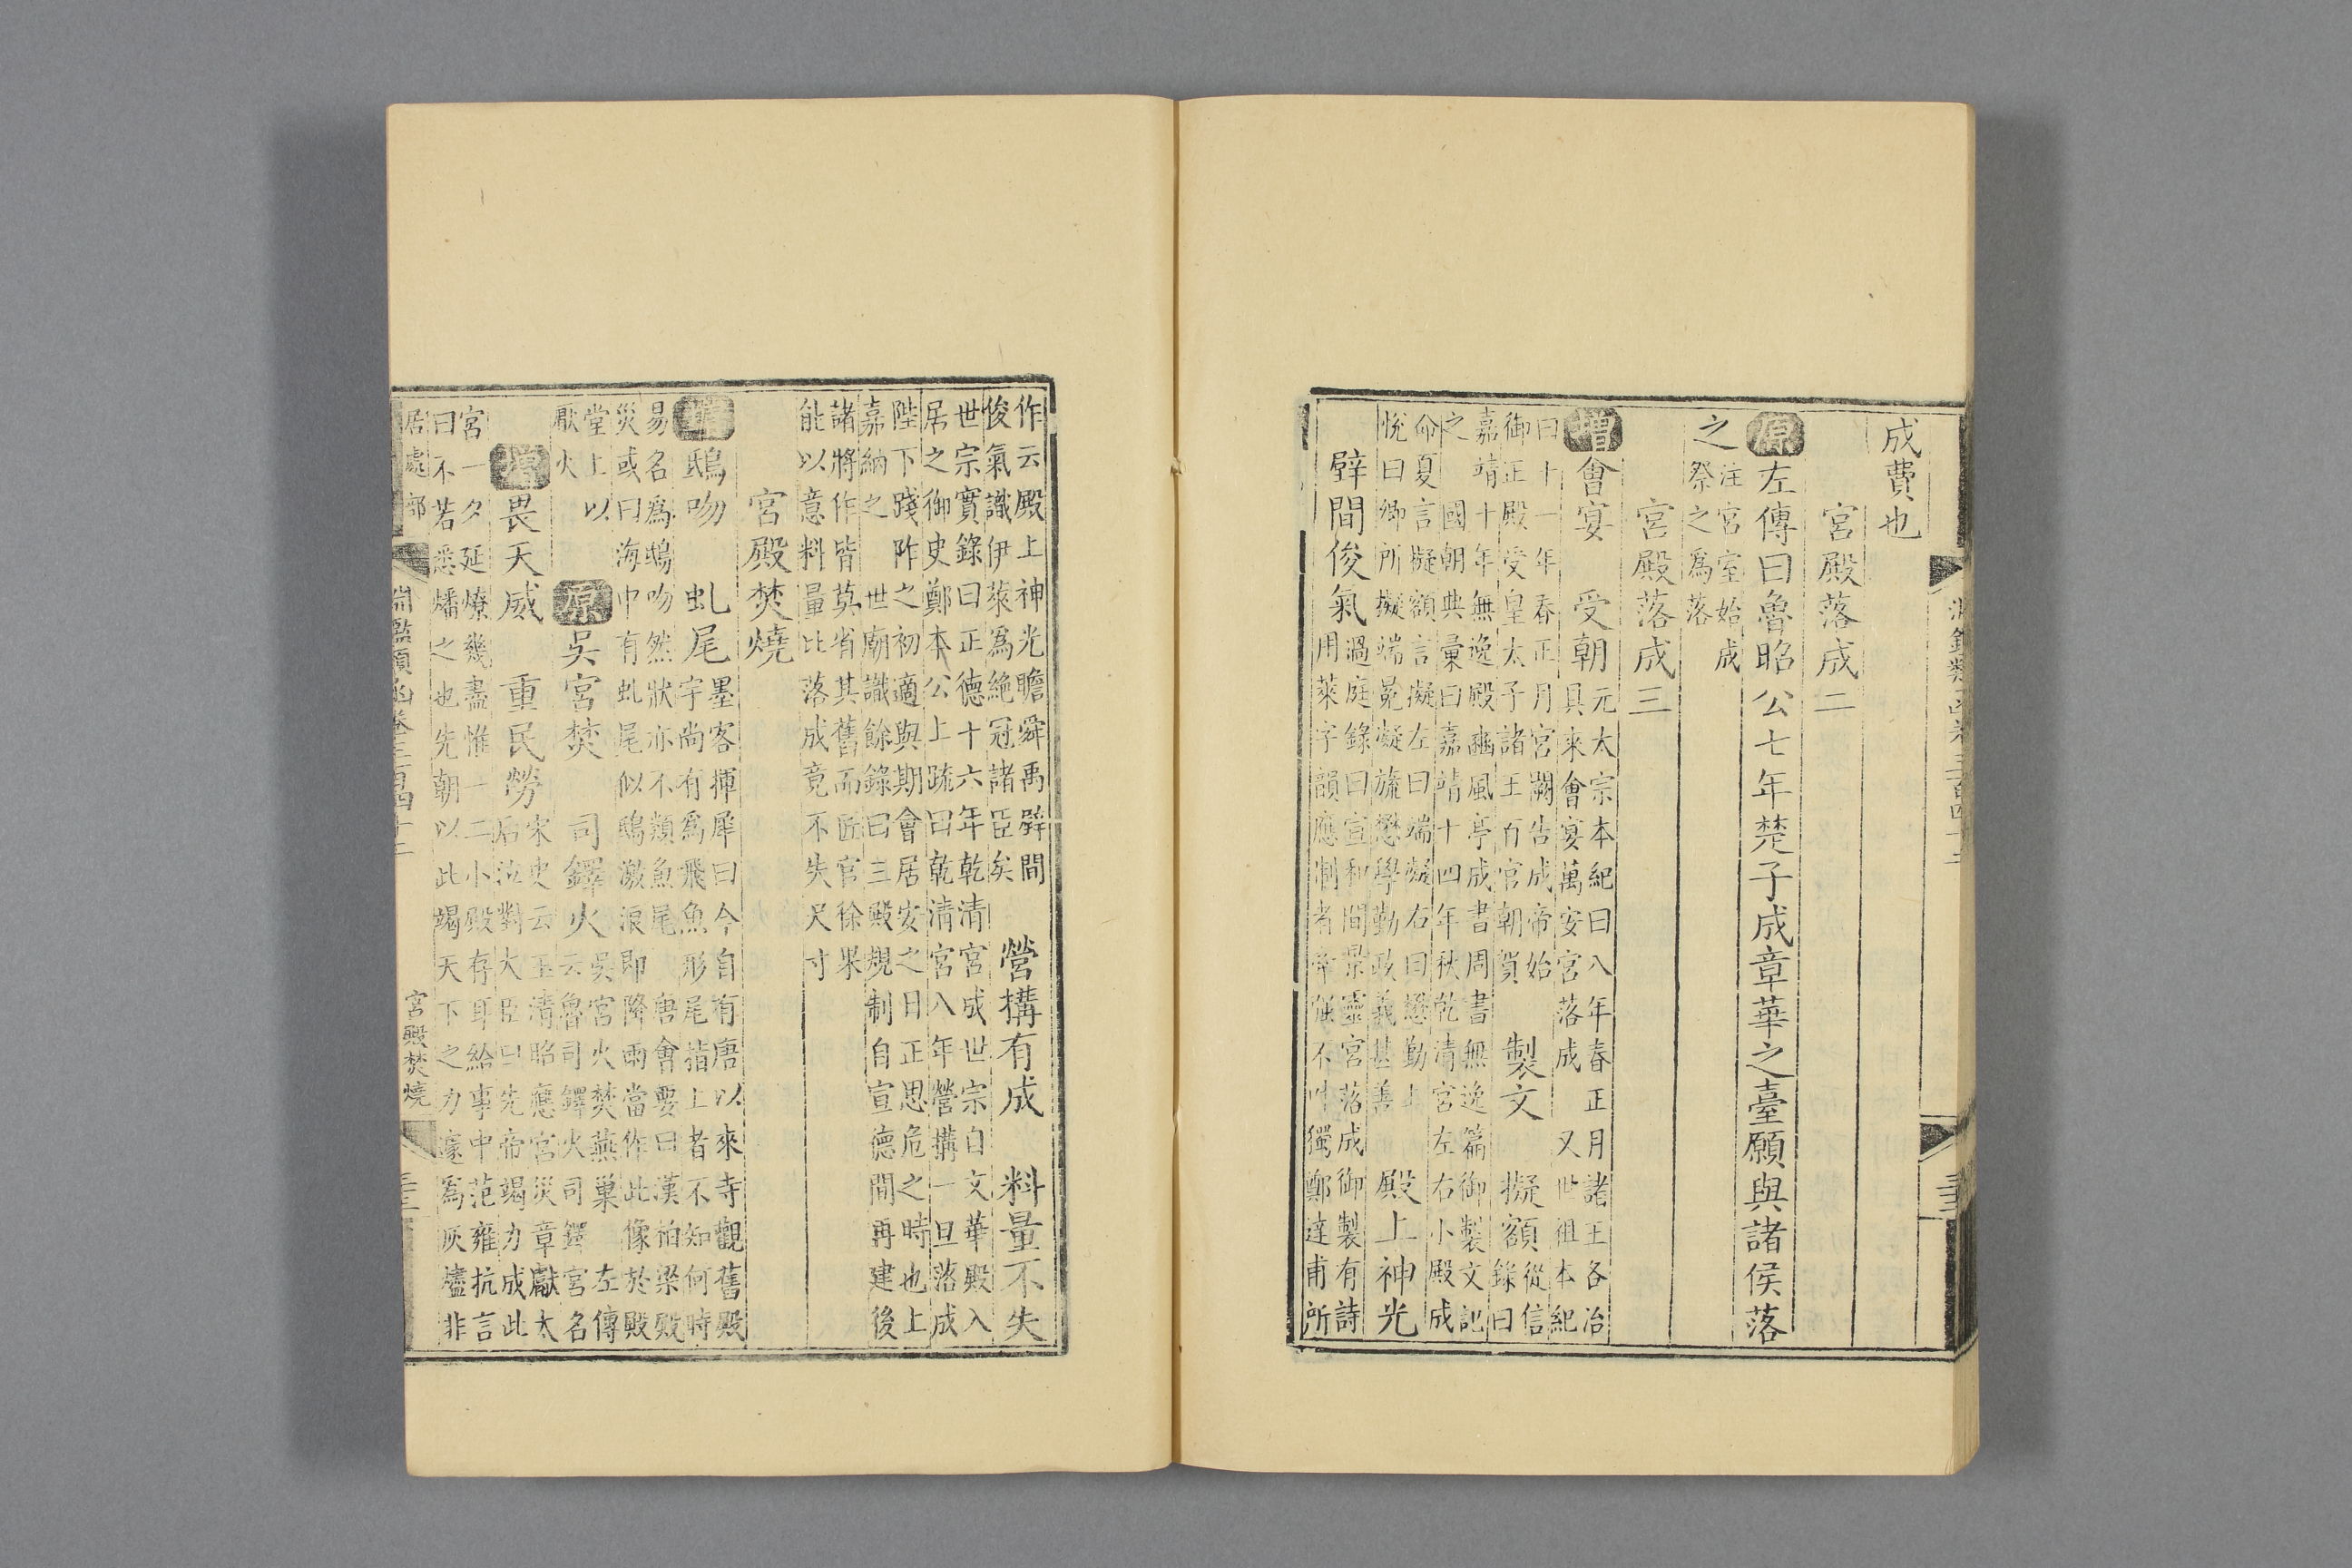 成費也
宮殿落成二
原左傳曰魯昭公七年楚子成章華之臺願與諸侯落
之注宮室始成
祭之爲落
宮殿落成三
增會宴 受朝元太宗本紀曰八年春正月諸王各治
具來會宴萬安宮落成 又世祖本紀
曰十一年春正月宮闕告成帝始
御正殿受皇太子諸王百官朝賀 製文 擬額從信
錄曰
嘉靖十年無逸殿豳風亭成書周書無逸篇御製文記
之 國朝典彙曰嘉靖十四年秋乾清宮左右小殿成
命夏言擬額言擬左曰端凝右曰懋勤上
悅曰卿所擬端冕凝旒懋學勤政義甚善 殿上神光
壁間俊氣過庭錄曰宣和間景靈宮落成御製有詩
用萊字韻應制者帝 不叶獨鄭達甫所
作云殿上神光瞻舜禹壁間
俊氣識伊萊爲絶冠諸臣矣 營搆有成 料量不失
世宗實錄曰正德十六年乾清宮成世宗自文華殿入
居之御史鄭本公上疏曰乾清宮八年營搆一旦落成
陛下踐阼之初適與期會居安之日正思危之時也上
嘉納之 世廟識餘錄曰三殿規制自宣德間再建後
諸將作皆莫省其舊而匠官徐杲
能以意料量比落成竟不失尺寸
宮殿焚燒
增鴟吻 虬尾墨客揮犀曰今自有唐以來寺觀舊殿
宇尚有爲飛魚形尾指上者不知何時
易名爲鴟吻然狀亦不類魚尾 唐會要曰漢柏梁殿
災或曰海中有虬尾似鴟激浪即降雨當作此像於殿
堂上以
厭火 原吳宮焚 司鐸火吳宮火焚燕巢 左傳
云魯司鐸火司鐸宮名
增畏天威 重民勞宋史云玉清昭應宮災章獻太
后泣對大臣曰先帝竭力成此
宮一夕延燎幾盡惟一二小殿存耳給事中范雍抗言
曰不若悉燔之也先朝以此竭天下之力遽爲灰燼非
居處部
淵鑑類函卷三百四十二
宮殿焚燒